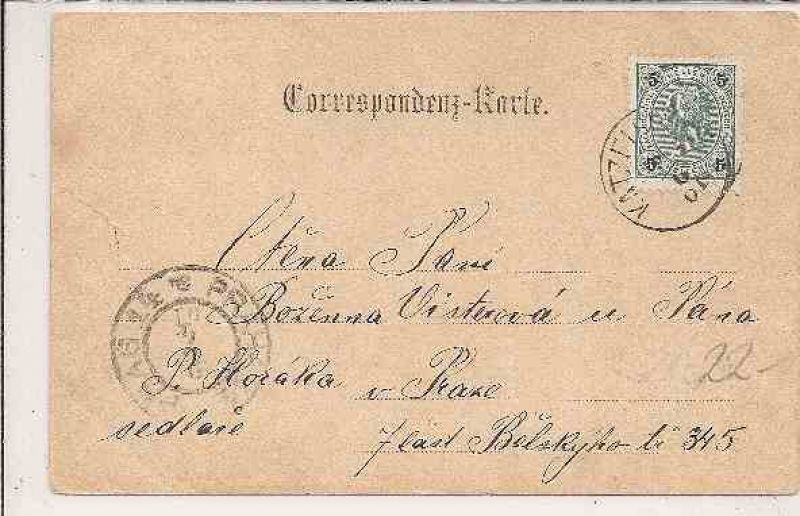 Correspondenz-Karte.
5 5
5 5
KATZ
Ctěna Paní
Boženna Visterová u Pána
P. Horáka v Praze
sedlaře
třída Bělskýho čí 345
22-